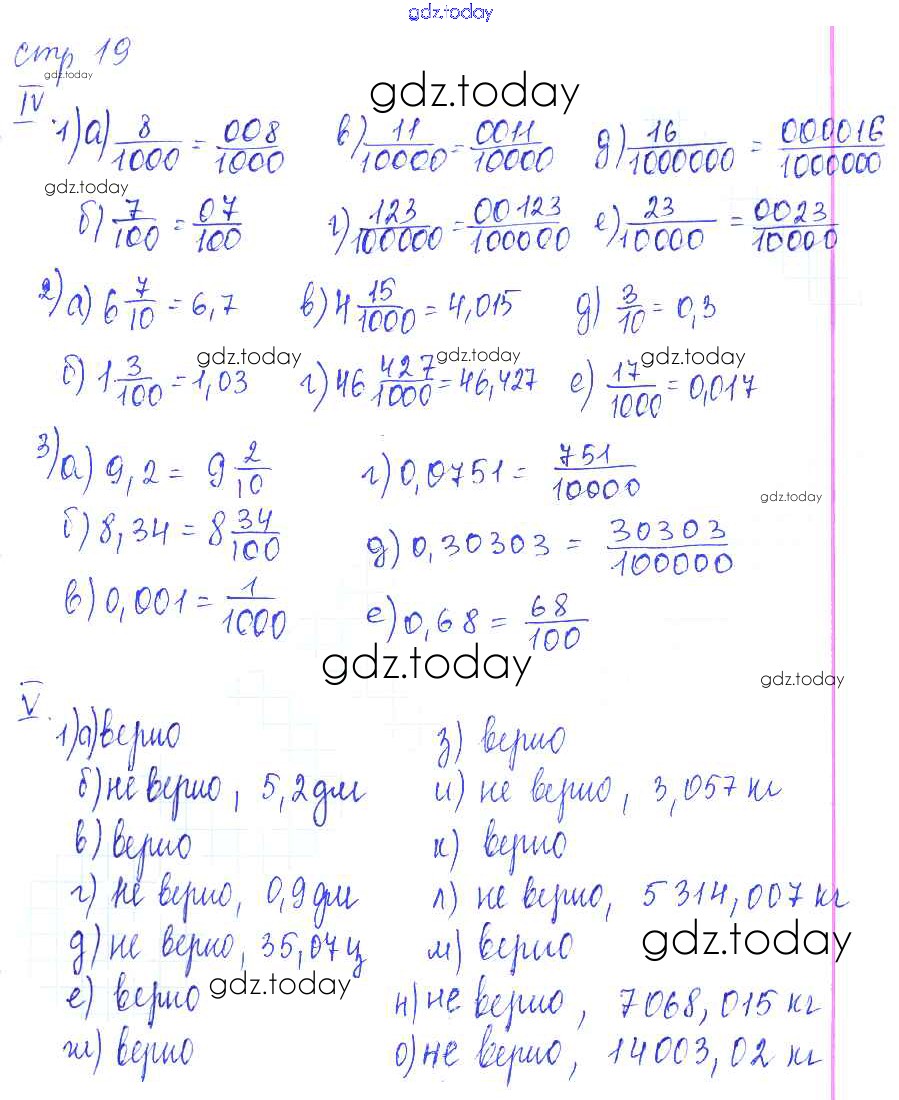 gdz.today
стр 19
gdz.today
IV
gdz.today
1) а) 8/1000 = 008/1000 в) 11/10000 = 0011/10000 д) 16/1000000 = 000016/1000000
gdz.today
б) 7/100 = 07/100 г) 123/100000 = 00123/100000 е) 23/10000 = 0023/10000
2) а) 6 7/10 = 6,7 в) 4 15/1000 = 4,015 д) 3/10 = 0,3
gdz.today gdz.today gdz.today
б) 1 3/100 = 1,03 г) 46 427/1000 = 46,427 е) 17/1000 = 0,017
3) а) 9,2 = 9 2/10 г) 0,0751 = 751/10000
gdz.today
б) 8,34 = 8 34/100 д) 0,30303 = 30303/100000
в) 0,001 = 1/1000 е) 0,68 = 68/100
gdz.today gdz.today
V.
1) а) верно з) верно
б) не верно, 5,2 дм и) не верно, 3,057 кг
в) верно к) верно
г) не верно, 0,9 дм л) не верно, 5314,007 кг
д) не верно, 35,04 ц м) верно gdz.today
е) верно gdz.today н) не верно, 7068,015 кг
ж) верно о) не верно, 14003,02 кг